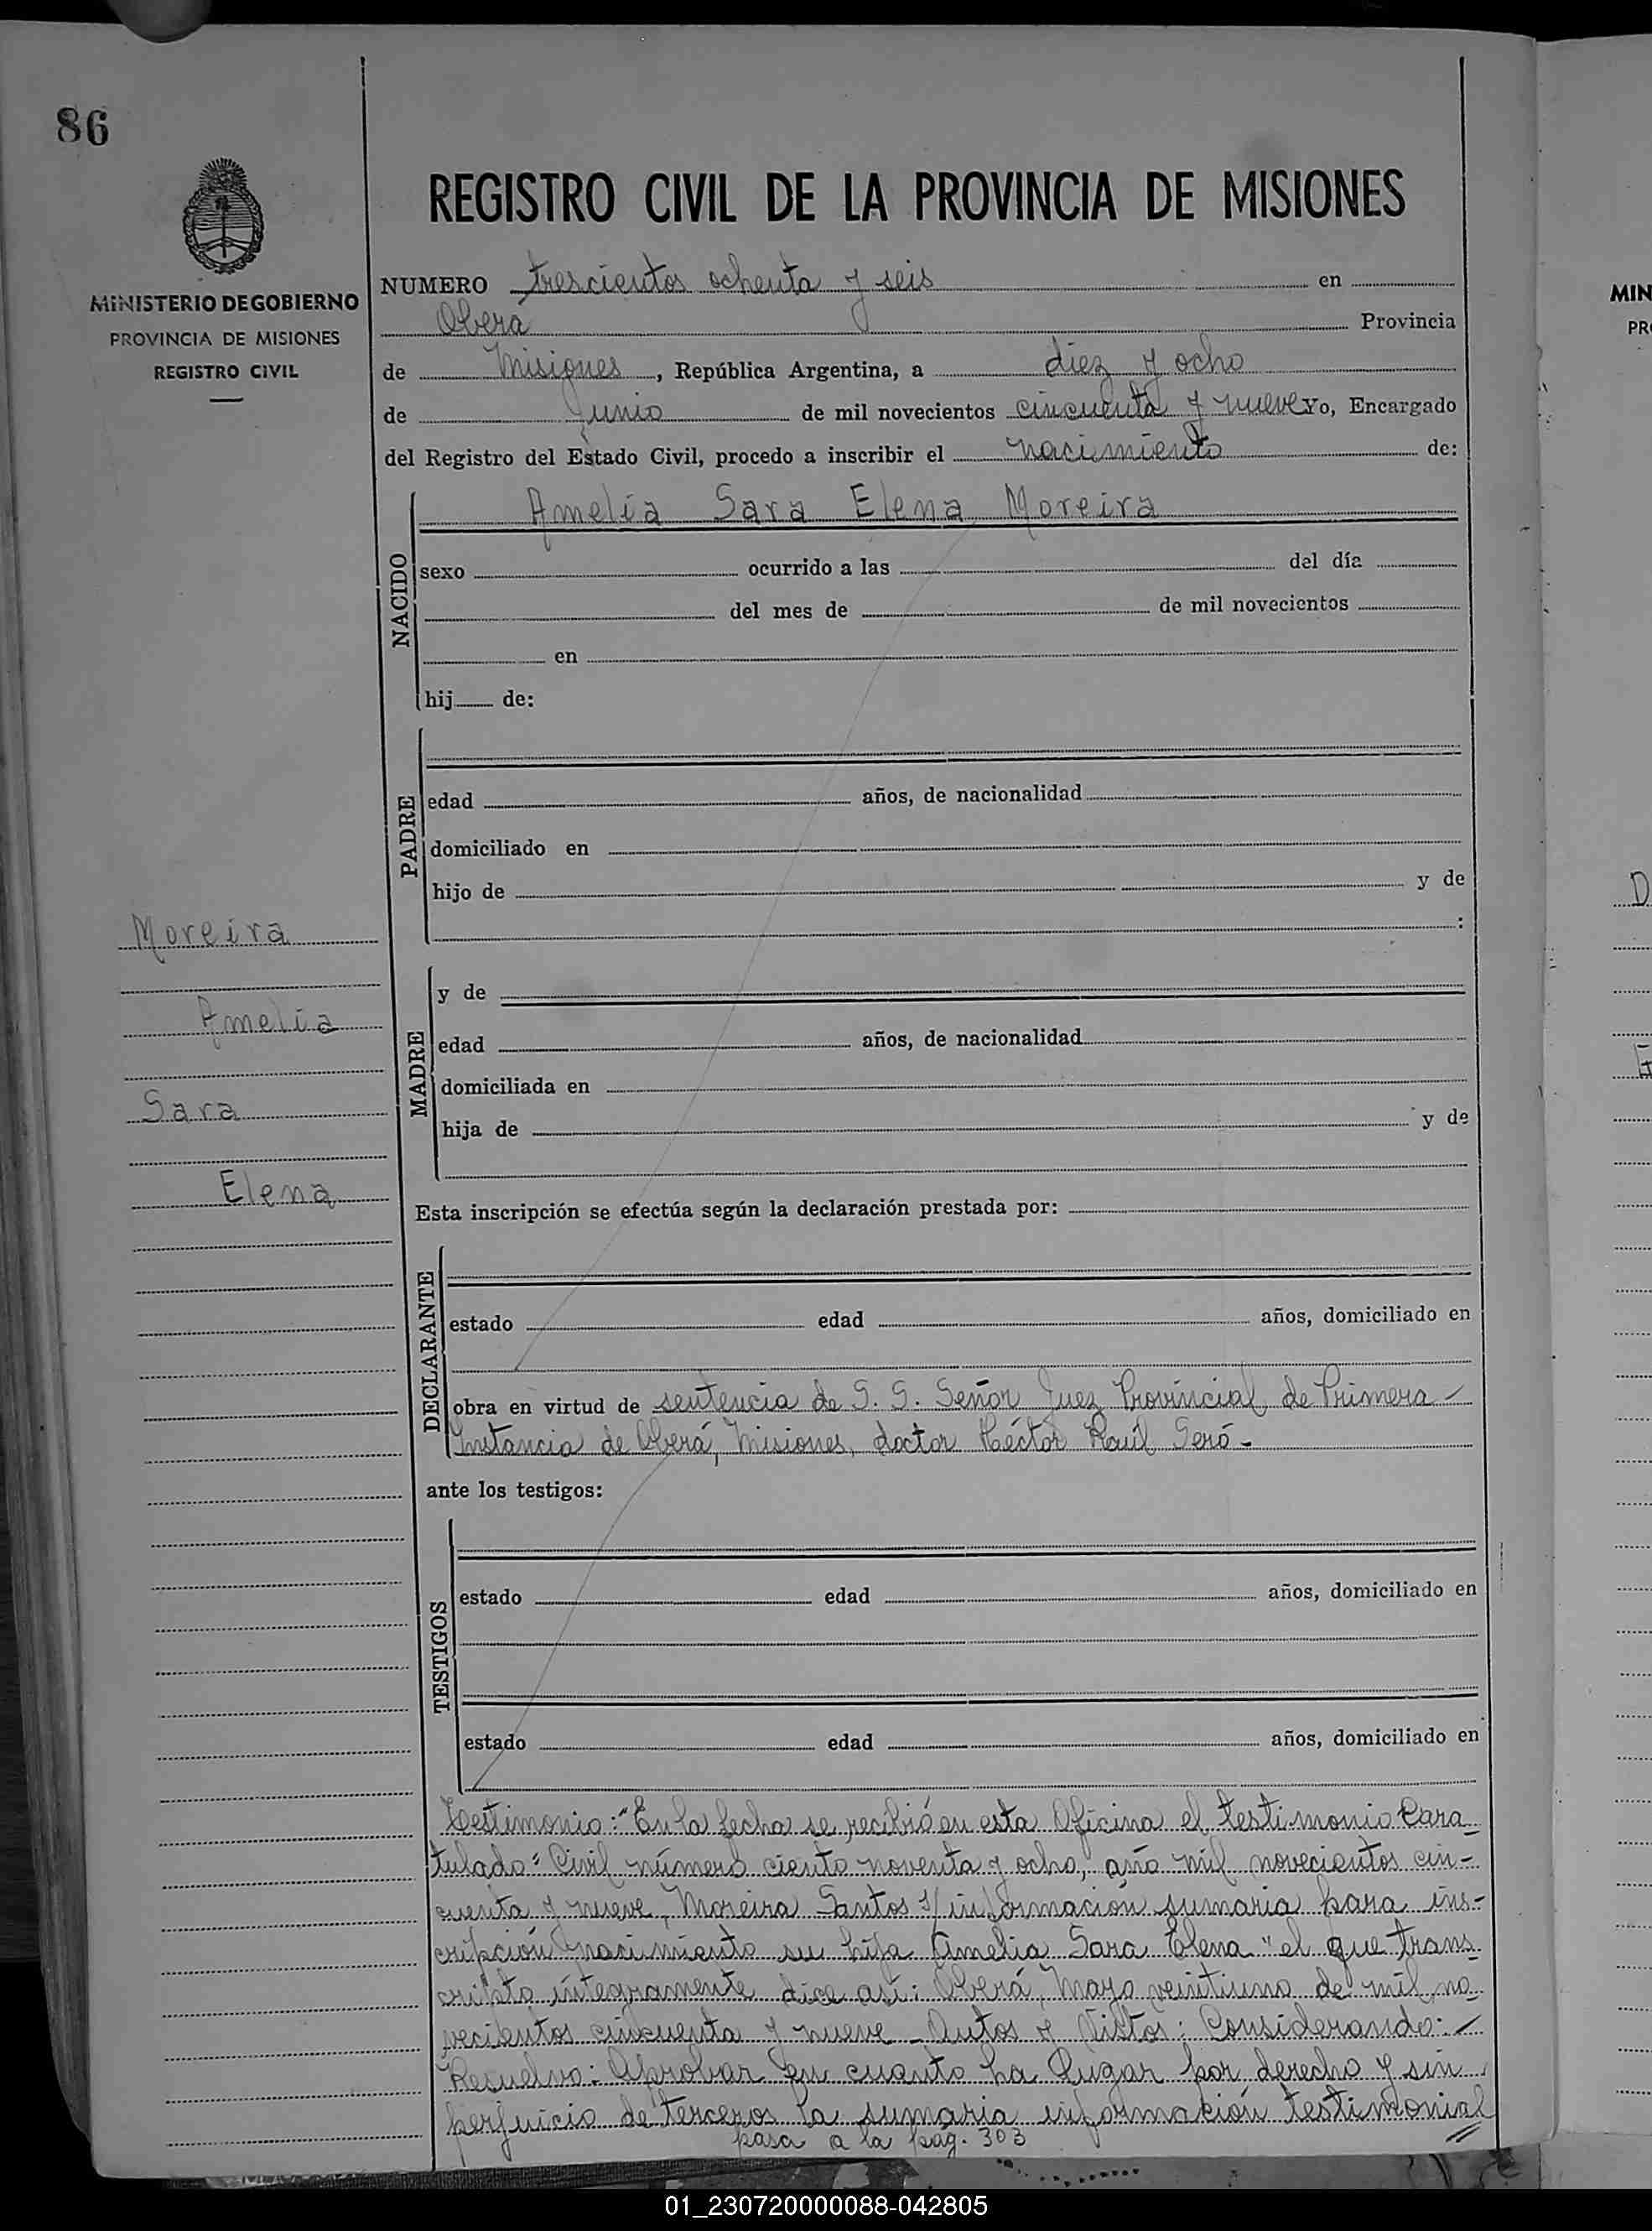 86
REGISTRO CIVIL DE LA PROVINCIA DE MISIONES
MINISTERIO DE GOBIERNO
PROVINCIA DE MISIONES
REGISTRO CIVIL
NUMERO trescientos ochenta y seis en
Oberá Provincia
de Misiones, República Argentina, a diez y ocho
de Junio de mil novecientos cincuenta y nueve Yo, Encargado
del Registro del Estado Civil, procedo a inscribir el nacimiento de:
NACIDO
Amelia Sara Elena Moreira
sexo ocurrido a las del día
del mes de de mil novecientos
en
hij de:
PADRE
edad años, de nacionalidad
domiciliado en
hijo de y de
:
Moreira
Amelia
Sara
Elena
MADRE
y de
edad años, de nacionalidad
domiciliada en
hija de y de
Esta inscripción se efectúa según la declaración prestada por:
DECLARANTE
estado edad años, domiciliado en
obra en virtud de sentencia de S. S. Señor Juez Provincial de Primera
Instancia de Oberá, Misiones, doctor Héctor Raúl Seró-
ante los testigos:
TESTIGOS
estado edad años, domiciliado en
estado edad años, domiciliado en
Testimonio: "En la fecha se recibió en esta Oficina el testimonio Cara-
tulado: Civil número ciento noventa y ocho, año mil novecientos cin-
cuenta y nueve, Moreira Santos s/ información sumaria para ins-
cripción nacimiento su hija Amelia Sara Elena" el que trans-
cripto íntegramente dice así: Oberá, Mayo veintiuno de mil no-
vecientos cincuenta y nueve - Autos y Vistos: Considerando:
Resuelvo: Aprobar en cuanto ha lugar por derecho y sin
perjuicio de terceros la sumaria información testimonial
pasa a la pág. 303
MIN
PR
D
01_230720000088-042805